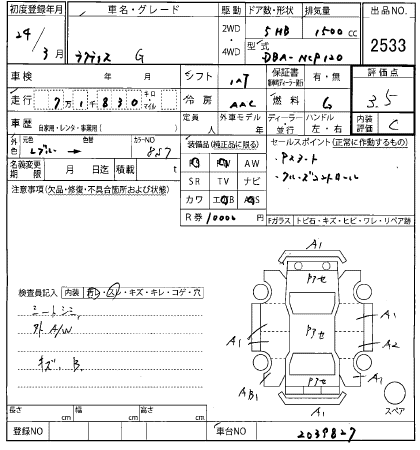 初度登録年月 車名・グレード 駆動 ドア数・形状 排気量 出品NO
24/3月 ラクティス G 2WD・4WD 5 HB 1500cc 2533
型式 DBA-NCP120
車検 年 月 シフト IAT 保証書 有・無 評価点
走行 7万1千830 キロ マイル 冷房 AAC 燃料 G 3.5
車歴 自家用・レンタ・事業用( ) 定員 人 外車モデル 年 ディーラー・並行 ハンドル 左・右 内装評価 C
外色 元色 色替 カラーNO 857
装備品(純正品に限る) セールスポイント(正常に作動するもの)
名義変更期限 月 日迄 積載 t
PS PW AW
SR TV ナビ
カワ エアB ABS
R券 10000 円
・Pスタート
・クルーズコントロール
注意事項(欠品・修復・不具合箇所および状態)
Fガラス トビ石・キズ・ヒビ・ワレ・リペア跡
検査員記入 内装 ヨゴレ・スレ・キズ・キレ・コゲ・穴
シートシミ
外A/W
キズ、B
A1
Pアセ
A1
A1
Pアセ
A2
AB1
A1
Pアセ
A1
スペア
長さ cm 幅 cm 高さ cm
登録NO 車台NO 2039827